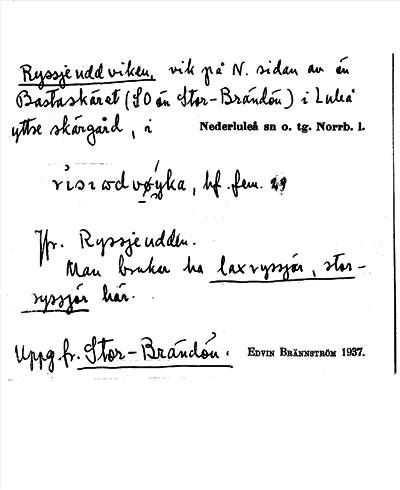 Ryssjeuddviken, vik på N. sidan av ön
Bastaskäret (SO ön Stor-Brändön) i Luleå
yttre skärgård, i Nederluleå sn o. tg. Norrb. l.
bf. fem.
Jfr. Ryssjeudden.
Man brukar ha laxryssjör, stor-
ryssjör här.
Uppg fr. Stor-Brändön. EDVIN BRÄNNSTRÖM 1937.